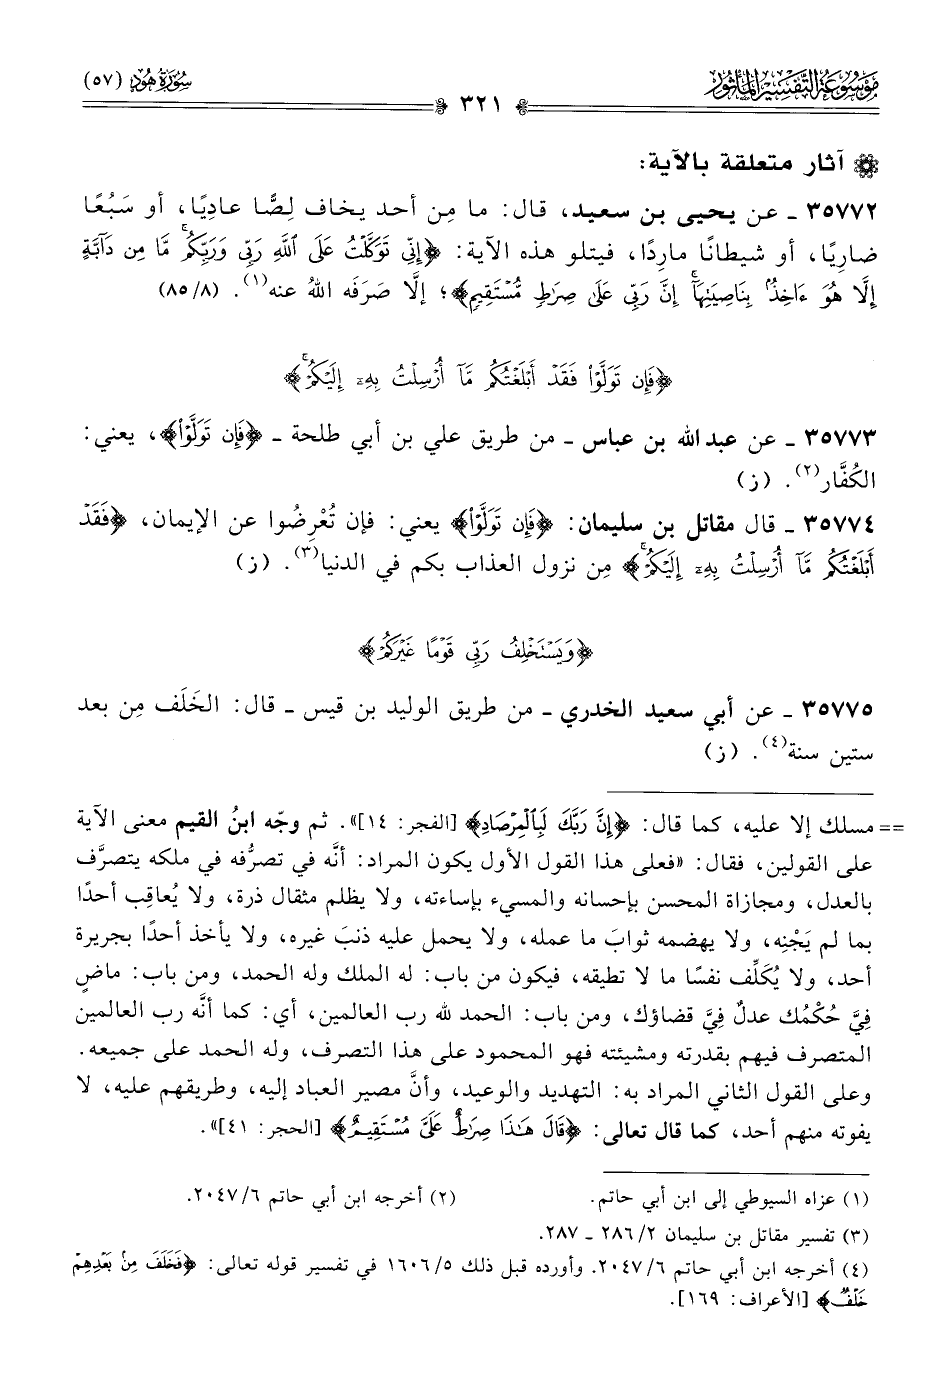 موسوعة التفسير المأثور
سورة هود (٥٧)
٣٢١
آثار متعلقة بالآية:
٣٥٧٧٢ ـ عن يحيى بن سعيد، قال: ما مِن أحد يخاف لِصًّا عاديًا، أو سَبُعًا
ضاريًا، أو شيطانًا ماردًا، فيتلو هذه الآية: ﴿إِنِّي تَوَكَّلْتُ عَلَى ٱللَّهِ رَبِّي وَرَبِّكُمۚ مَّا مِن دَآبَّةٍ
إِلَّا هُوَ ءَاخِذُۢ بِنَاصِيَتِهَآۚ إِنَّ رَبِّي عَلَىٰ صِرَٰطٍ مُّسْتَقِيمٍ﴾؛ إلَّا صَرَفه اللهُ عنه(١). (٨/ ٨٥)
﴿فَإِن تَوَلَّوْا۟ فَقَدْ أَبْلَغْتُكُم مَّآ أُرْسِلْتُ بِهِۦٓ إِلَيْكُمْۚ﴾
٣٥٧٧٣ ـ عن عبد الله بن عباس ـ من طريق علي بن أبي طلحة ـ ﴿فَإِن تَوَلَّوْا۟﴾، يعني:
الكُفَّار(٢). (ز)
٣٥٧٧٤ ـ قال مقاتل بن سليمان: ﴿فَإِن تَوَلَّوْا۟﴾ يعني: فإن تُعْرِضُوا عن الإيمان، ﴿فَقَدْ
أَبْلَغْتُكُم مَّآ أُرْسِلْتُ بِهِۦٓ إِلَيْكُمْۚ﴾ مِن نزول العذاب بكم في الدنيا(٣). (ز)
﴿وَيَسْتَخْلِفُ رَبِّي قَوْمًا غَيْرَكُمْ﴾
٣٥٧٧٥ ـ عن أبي سعيد الخدري ـ من طريق الوليد بن قيس ـ قال: الخَلَف مِن بعد
ستين سنة(٤). (ز)
== مسلك إلا عليه، كما قال: ﴿إِنَّ رَبَّكَ لَبِٱلْمِرْصَادِ﴾ [الفجر: ١٤]». ثم وجّه ابنُ القيم معنى الآية
على القولين، فقال: «فعلى هذا القول الأول يكون المراد: أنَّه في تصرُّفه في ملكه يتصرَّف
بالعدل، ومجازاة المحسن بإحسانه والمسيء بإساءته، ولا يظلم مثقال ذرة، ولا يُعاقِب أحدًا
بما لم يَجْنِه، ولا يهضمه ثوابَ ما عمله، ولا يحمل عليه ذنبَ غيره، ولا يأخذ أحدًا بجريرة
أحد، ولا يُكَلِّف نفسًا ما لا تطيقه، فيكون من باب: له الملك وله الحمد، ومن باب: ماضٍ
فِيَّ حُكْمُك عدلٌ فِيَّ قضاؤك، ومن باب: الحمد لله رب العالمين، أي: كما أنَّه رب العالمين
المتصرف فيهم بقدرته ومشيئته فهو المحمود على هذا التصرف، وله الحمد على جميعه.
وعلى القول الثاني المراد به: التهديد والوعيد، وأنَّ مصير العباد إليه، وطريقهم عليه، لا
يفوته منهم أحد، كما قال تعالى: ﴿قَالَ هَٰذَا صِرَٰطٌ عَلَيَّ مُسْتَقِيمٌ﴾ [الحجر: ٤١]».
(١) عزاه السيوطي إلى ابن أبي حاتم. (٢) أخرجه ابن أبي حاتم ٦/ ٢٠٤٧.
(٣) تفسير مقاتل بن سليمان ٢/ ٢٨٦ ـ ٢٨٧.
(٤) أخرجه ابن أبي حاتم ٦/ ٢٠٤٧. وأورده قبل ذلك ٥/ ١٦٠٦ في تفسير قوله تعالى: ﴿فَخَلَفَ مِنۢ بَعْدِهِمْ
خَلْفٌ﴾ [الأعراف: ١٦٩].